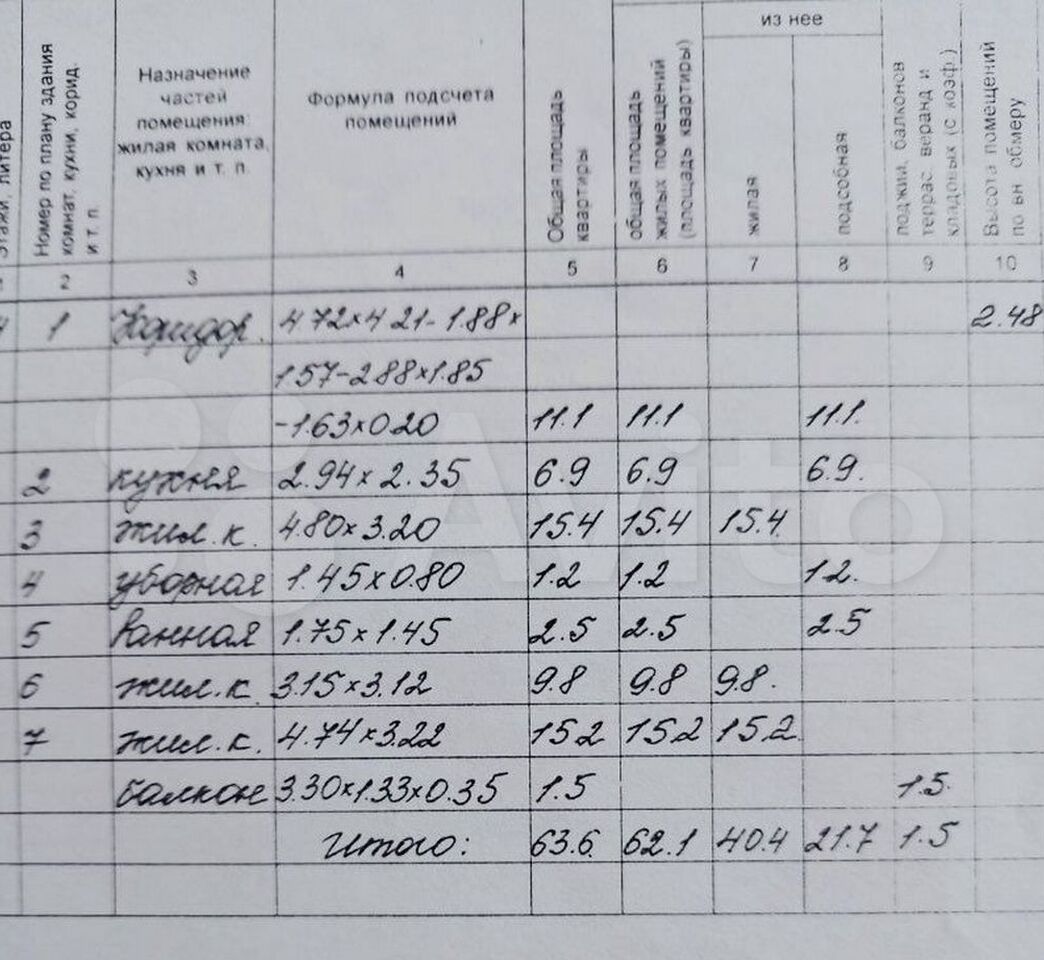 из нее
Этажи, литера
Номер по плану здания комнат, кухни, корид. и т. п.
Назначение частей помещения жилая комната, кухня и т. п.
Формула подсчета помещений
Общая площадь квартиры
общая площадь жилых помещений (площадь квартиры)
жилая
подсобная
лоджий, балконов террас, веранд и кладовых (с коэф.)
Высота помещений по вн обмеру
2 3 4 5 6 7 8 9 10
1 Коридор. 4.72×4.21-1.88× 2.48
1.57-2.88×1.85
-1.63×0.20 11.1 11.1 11.1.
2 кухня 2.94×2.35 6.9 6.9 6.9.
3 жил.к. 4.80×3.20 15.4 15.4 15.4
4 уборная 1.45×0.80 1.2 1.2 1.2.
5 Ванная 1.75×1.45 2.5 2.5 2.5
6 жил.к. 3.15×3.12 9.8 9.8 9.8.
7 жил.к. 4.74×3.22 15.2 15.2 15.2.
балкон 3.30×1.33×0.35 1.5 1.5.
Итого: 63.6. 62.1 40.4 21.7 1.5
Avito